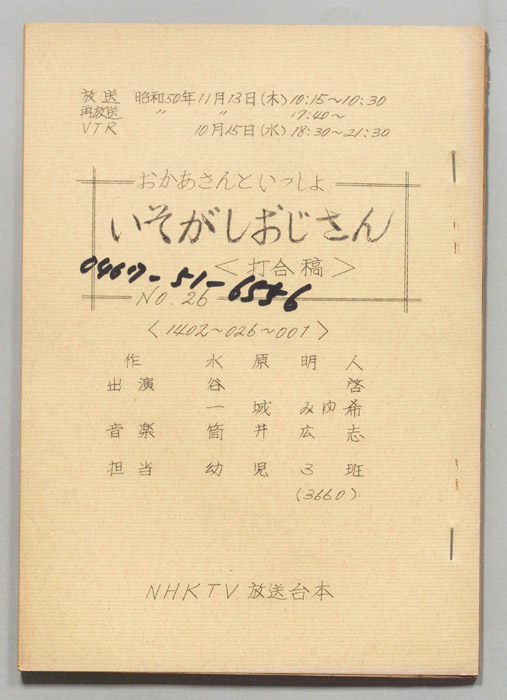 放送 昭和50年11月13日(木) 10:15~10:30
再放送 〃 〃 17:40~
VTR 10月15日(水) 18:30~21:30
おかあさんといっしょ
いそがしおじさん
<打合稿>
0467-51-6556
No. 26
<1402~026~001>
作 水原明人
出演 谷 啓
一城みゆ希
音楽 筒井広志
担当 幼児3班
(3660)
NHKTV 放送台本